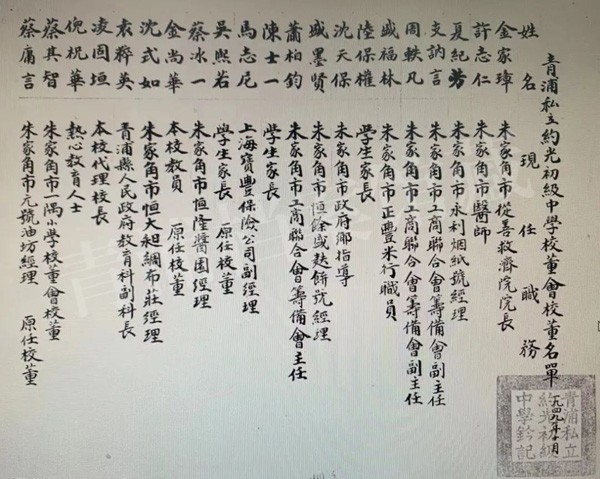 青浦私立約光初級中學校董會校董名單
一九四九年十月
姓名 現任職務
金家瑋 朱家角市從善救濟院院長
許志仁 朱家角市醫師
夏紀芳 朱家角市永利烟紙號經理
支訥言 朱家角市工商聯合會籌備會副主任
周軼凡 朱家角市工商聯合會籌備會副主任
盛福林 朱家角市正豐米行職員
陸保權 學生家長
沈天保 朱家角市政府鄉指導
盛墨賢 朱家角市恒餘盛麩餅號經理
蕭柏鈞 朱家角市工商聯合會籌備會主任
陳士一 學生家長
馬志尼 上海寶豐保險公司副經理
吳熙若 學生家長 原任校董
蔡冰一 朱家角市恒隆醬園經理
金尚華 本校教員 原任校董
沈式如 朱家角市恒大昶綢布莊經理
袁釋英 青浦縣人民政府教育科副科長
凌固垣 本校代理校長
倪祝華 熱心教育人士
蔡其智 朱家角市一隅小學校董會校董
蔡庸言 朱家角市元號油坊經理 原任校董
青浦私立
約光初級
中學鈐記